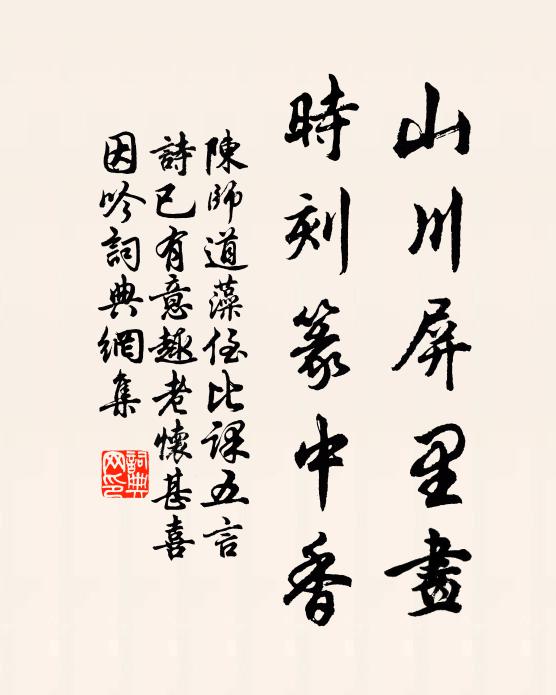 山川屏里畫
時刻篆中香
陳師道藻侄比課五言
詩已有意趣老懷甚喜
因吟詞典網集
詞典
网印